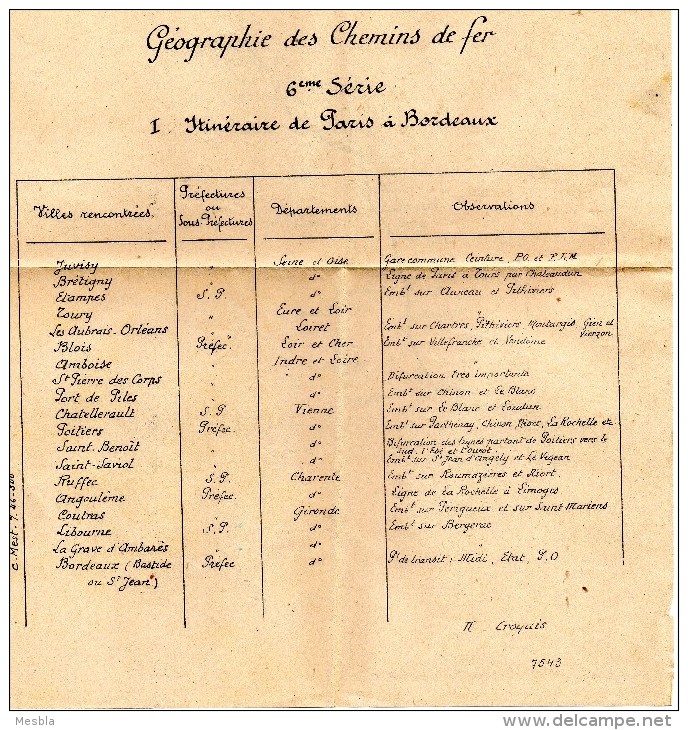 Géographie des Chemins de fer
6eme Série
I Itinéraire de Paris à Bordeaux
Villes rencontrées. Préfectures ou Sous-Préfectures Départements Observations
Juvisy " Seine et Oise Gare commune Ceinture, P.O. et P.L.M
Brétigny " d° Ligne de Paris à Tours par Chateaudun
Etampes S.P. d° Embt sur Auneau et Pithiviers
Toury " Eure et Loir "
Les Aubrais-Orléans " Loiret Embt sur Chartres, Pithiviers Montargis, Gien et Vierzon
Blois Préfec. Loir et Cher Embt sur Villefranche et Vendôme
Amboise " Indre et Loire "
St Pierre des Corps " d° Bifurcation très importante
Port de Piles " d° Embt sur Chinon et Le Blanc
Chatellerault S.P Vienne Embt sur Le Blanc et Loudun
Poitiers Préfec. d° Embt sur Parthenay, Chinon, Niort, La Rochelle etc.
Saint Benoît " d° Bifurcation des lignes partant de Poitiers vers le Sud, l'Est et l'Ouest
Saint-Saviol " d° Embt sur St Jean d'Angély et Le Vigean
Ruffec S.P. Charente Embt sur Roumazières et Niort
Angoulème Préfec. d° Ligne de La Rochelle à Limoges
Coutras " Gironde Embt sur Périgueux et sur Saint Mariens
Libourne S.P. d° Embt sur Bergerac
La Grave d'Ambarès " d° "
Bordeaux (Bastide Préfec d° de transit: Midi, Etat, P.O
ou St Jean)
II Croquis
7543
Mesbla
delcampe.net